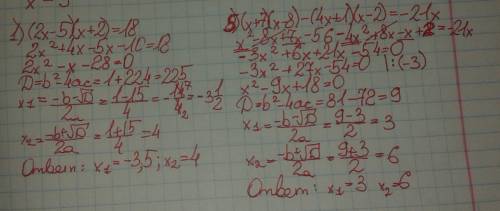 1) (2x-5)(x+2)=18
2x²+4x-5x-10=18
2x²-x-28=0
D=b²-4ac=1+224=225
x₁=(-b-√D)/2a=(1-15)/4=-14⁷/4₂=-3 1/2
x₂=(-b+√D)/2a=(1+15)/4=4
Ответ: x₁=-3,5; x₂=4
(x+7)(x-8)-(4x+1)(x-2)=-21x
x²-8x+7x-56-4x²+8x-x+2=-21x
-3x²+6x+21x-54=0
-3x²+27x-54=0 |:(-3)
x²-9x+18=0
D=b²-4ac=81-72=9
x₁=(-b-√D)/2a=(9-3)/2=3
x₂=(-b+√D)/2a=(9+3)/2=6
Ответ: x₁=3 x₂=6